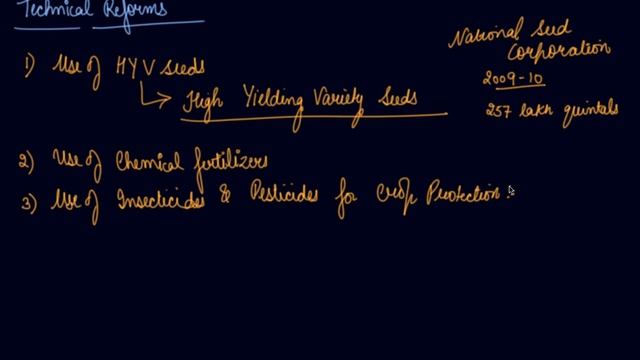 Technical Reforms
1) Use of HYV seeds
High Yielding Variety Seeds
National Seed
Corporation
2009-10
257 lakh quintals
2) Use of Chemical fertilizers
3) Use of Insecticides & Pesticides for Crop Protection.